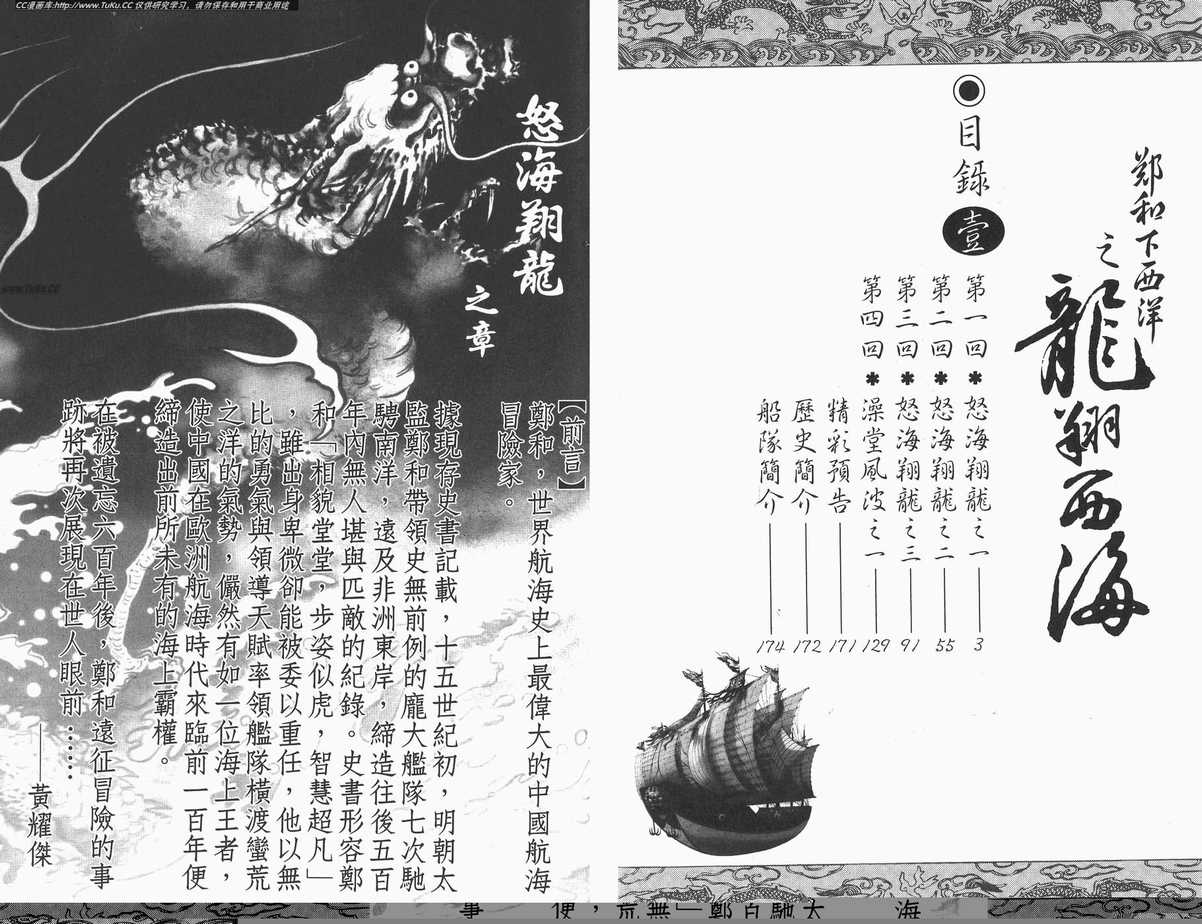 CC漫画库:http://www.TuKu.CC 仅供研究学习，请勿保存和用于商业用途
鄭和下西洋
之
龍翔西海
目錄
壹
第一回＊怒海翔龍之一——3
第二回＊怒海翔龍之二——55
第三回＊怒海翔龍之三——91
第四回＊澡堂風波之一——129
精彩預告——171
歷史簡介——172
船隊簡介——174
怒海翔龍
之章
【前言】
鄭和，世界航海史上最偉大的中國航海
冒險家。
據現存史書記載，十五世紀初，明朝太
監鄭和帶領史無前例的龐大艦隊七次馳
騁南洋，遠及非洲東岸，締造往後五百
年內無人堪與匹敵的紀錄。史書形容鄭
和「相貌堂堂，步姿似虎，智慧超凡」
，雖出身卑微卻能被委以重任，他以無
比的勇氣與領導天賦率領艦隊橫渡蠻荒
之洋的氣勢，儼然有如一位海上王者，
使中國在歐洲航海時代來臨前一百年便
締造出前所未有的海上霸權。
在被遺忘六百年後，鄭和遠征冒險的事
跡將再次展現在世人眼前……
——黃耀傑
www.TuKu.CC